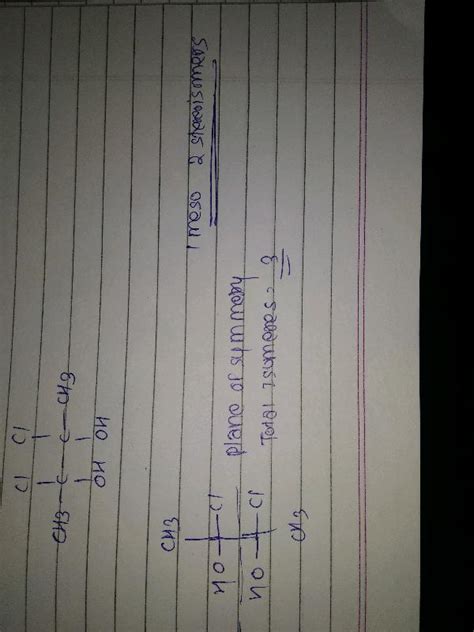 Cl Cl
CH3–C–C–CH3
OH OH
CH3
HO Cl
1 meso 2 stereoisomers
plane of symmetry
HO Cl
Total isomeres = 3
CH3